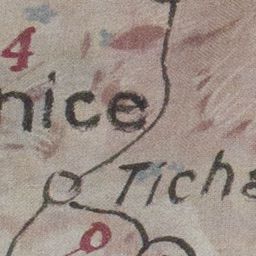 4
nice
Ticha